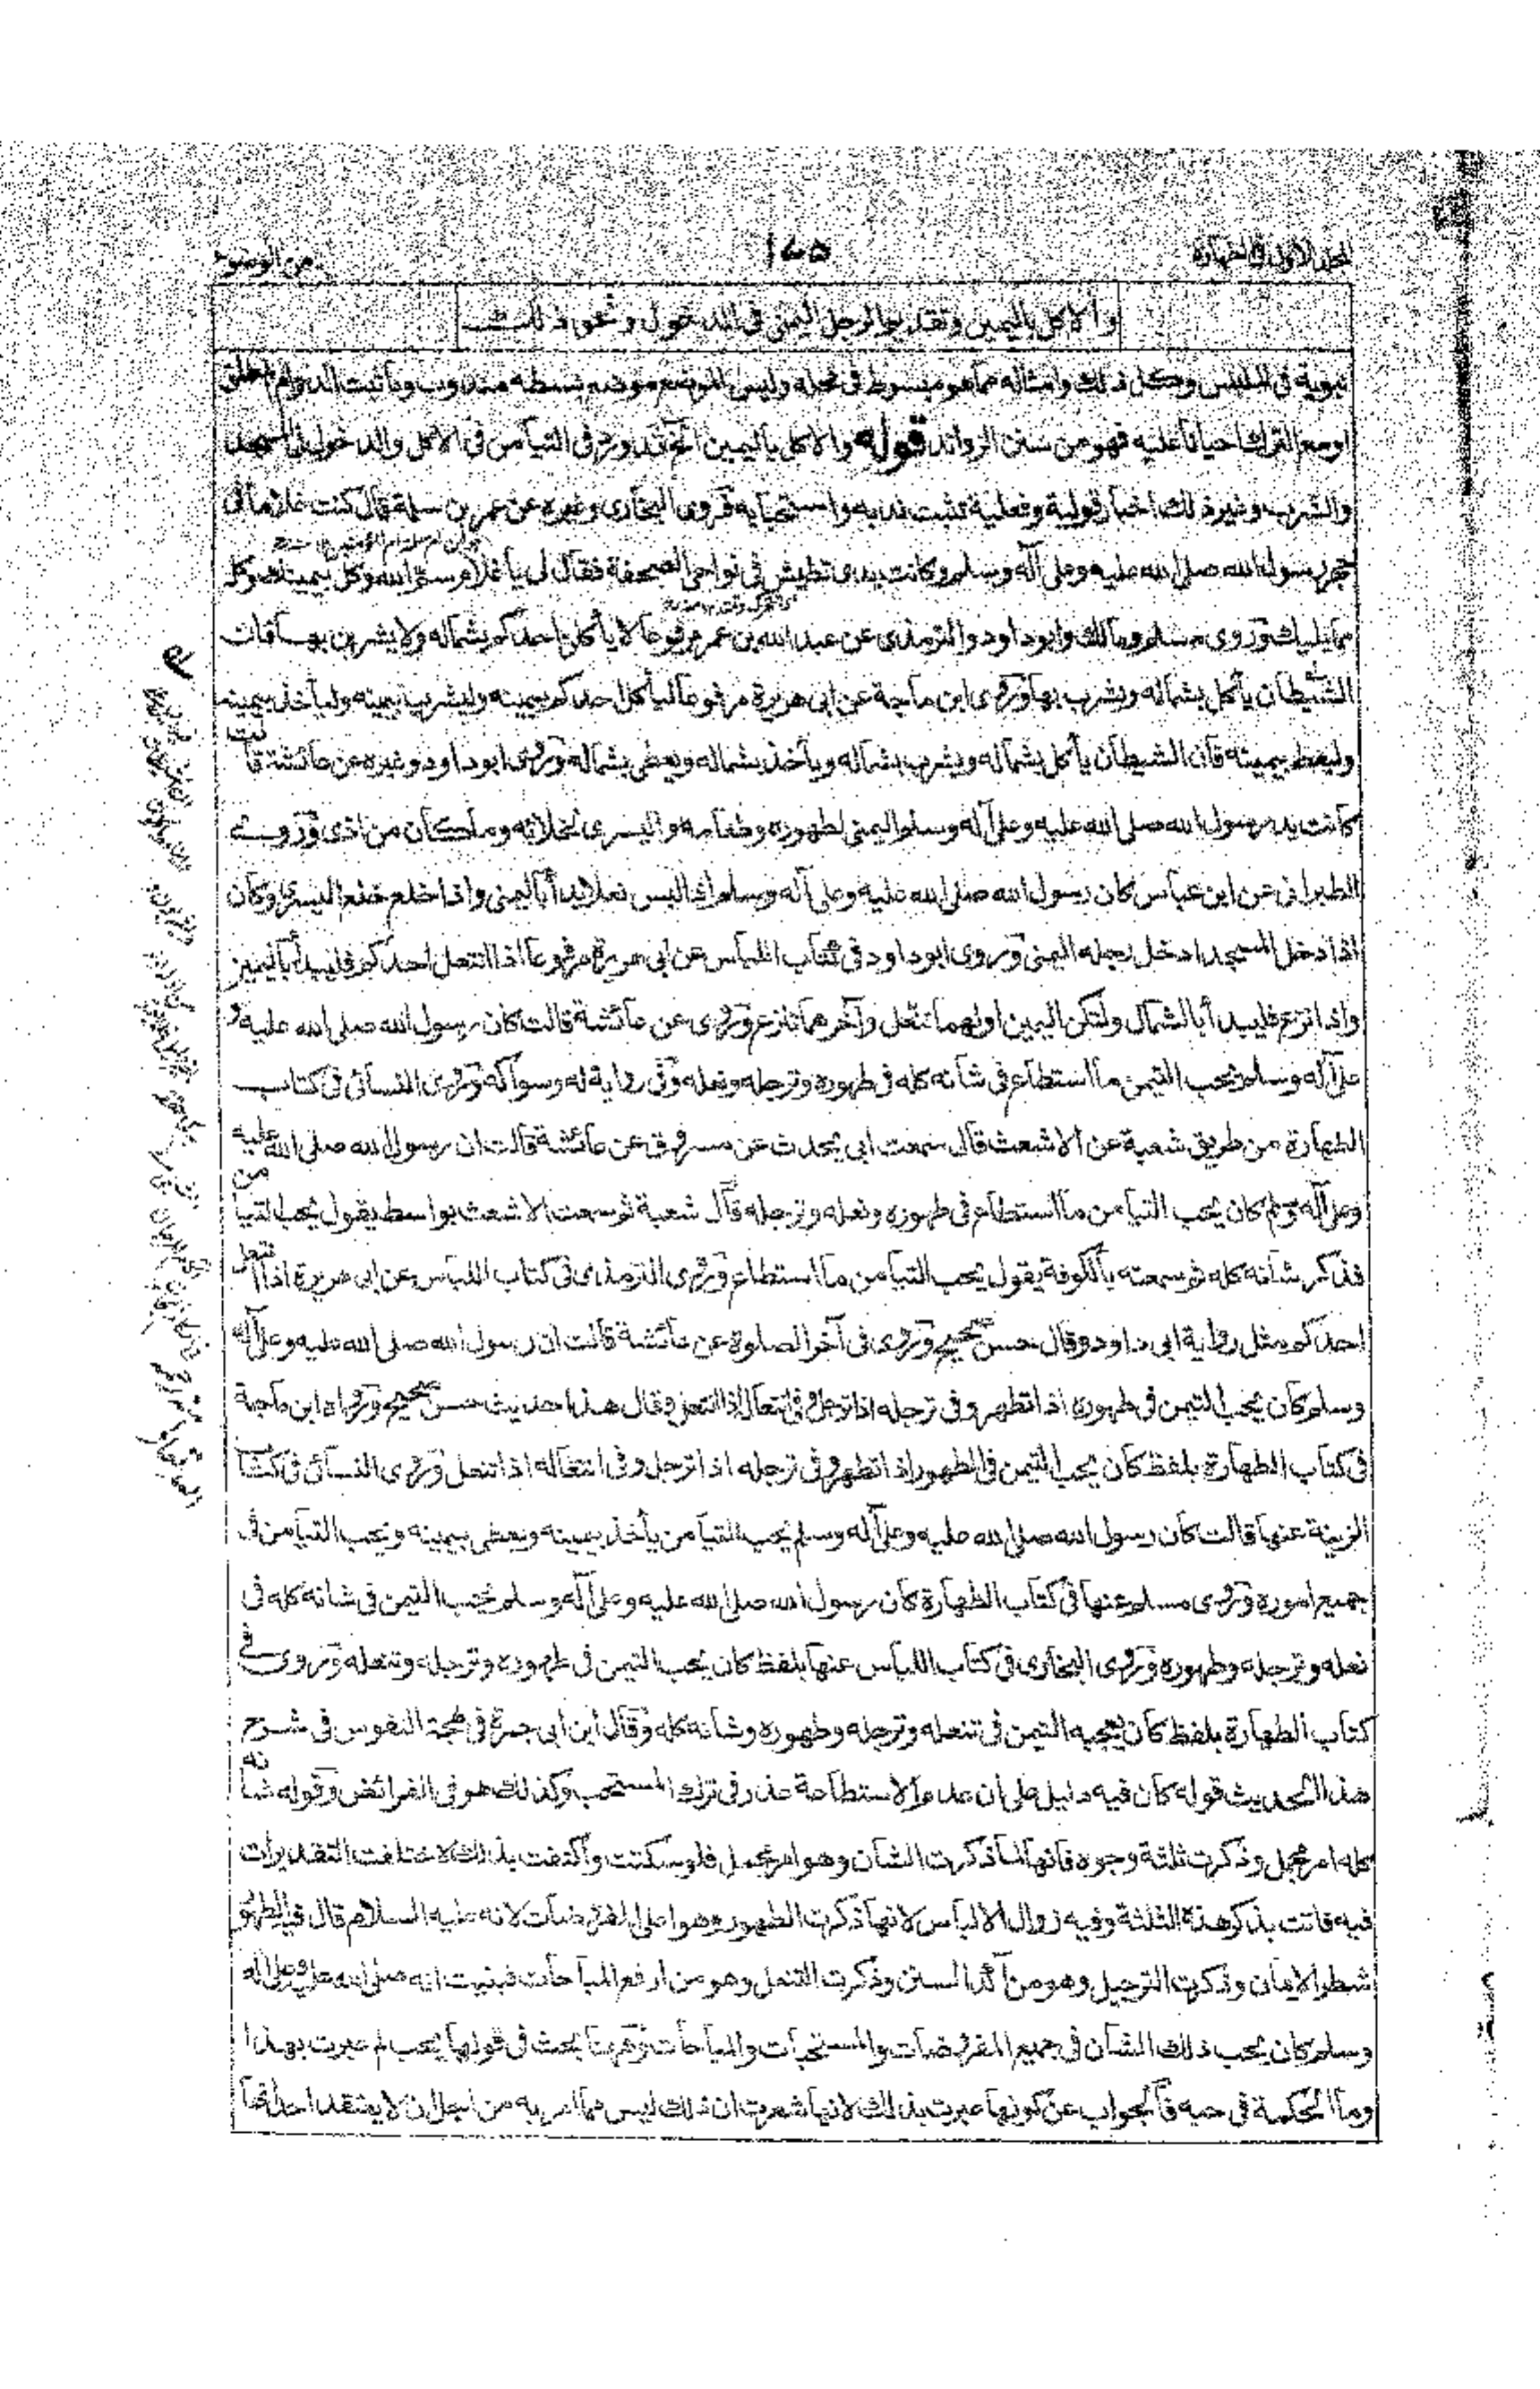 المجلد الاول في الطهارة ١٧٥ من الوضوء
والاكل باليمين وتقديم الرجل اليمنى في الدخول ونحو ذلك
نبوية في اللبس وكل ذلك وامثاله مما هو مبسوط في محله وليس هذا موضع بسطه مندوب وما ثبت الدوام المطلق
او مع الترك احيانا عليه فهو من سنن الزوائد قوله والاكل باليمين الخ قد ورد في التيامن في الاكل والدخول في المسجد
والشرب وغير ذلك اخبار قولية وفعلية تثبت ندبه واستحبابه فروى البخاري وغيره عن عمر بن سلمة قال كنت غلاما في
حجر رسول الله صلى الله عليه وعلى آله وسلم وكانت يدي تطيش في نواحي الصحفة فقال لي يا غلام سم الله وكل بيمينك وكل
مما يليك وروى مسلم ومالك وابوداود والترمذي عن عبد الله بن عمر مرفوعا لا يأكلن احدكم بشماله ولا يشربن بها فان
الشيطان يأكل بشماله ويشرب بها وروى ابن ماجة عن ابي هريرة مرفوعا ليأكل احدكم بيمينه وليشرب بيمينه وليأخذ بيمينه
وليعط بيمينه فان الشيطان يأكل بشماله ويشرب بشماله ويأخذ بشماله ويعطي بشماله وروى ابوداود وغيره عن عائشة قالت
كانت يد رسول الله صلى الله عليه وعلى آله وسلم اليمنى لطهوره وطعامه واليسرى لخلائه وما كان من اذى وروى
الطبراني عن ابن عباس كان رسول الله صلى الله عليه وعلى آله وسلم اذا لبس نعلا بدأ باليمنى واذا خلع خلع اليسرى وكان
اذا دخل المسجد ادخل رجله اليمنى وروى ابوداود في كتاب اللباس عن ابي هريرة مرفوعا اذا انتعل احدكم فليبدأ باليمين
واذا نزع فليبدأ بالشمال ولتكن اليمين اولهما تنعل وآخرهما تنزع وروى عن عائشة قالت كان رسول الله صلى الله عليه و
على آله وسلم يحب التيمن ما استطاع في شانه كله في طهوره وترجله ونعله وفي رواية له وسواكه وروى النسائي في كتاب
الطهارة من طريق شعبة عن الاشعث قال سمعت ابي يحدث عن مسروق عن عائشة قالت ان رسول الله صلى الله عليه
وعلى آله وسلم كان يحب التيامن ما استطاع في طهوره ونعله وترجله قال شعبة ثم سمعت الاشعث بواسط يقول يحب التيامن
فذكر شانه كله ثم سمعته بالكوفة يقول يحب التيامن ما استطاع وروى الترمذي في كتاب اللباس عن ابي هريرة اذا انتعل
احدكم مثل رواية ابي داود وقال حسن صحيح وروى في آخر الصلوة عن عائشة قالت ان رسول الله صلى الله عليه وعلى آله
وسلم كان يحب التيمن في طهوره اذا تطهر وفي ترجله اذا ترجل وفي انتعاله اذا انتعل وقال هذا حديث حسن صحيح ورواه ابن ماجة
في كتاب الطهارة بلفظ كان يحب التيمن في الطهور اذا تطهر وفي ترجله اذا ترجل وفي انتعاله اذا تنعل وروى النسائي في كتاب
الزينة عنها قالت كان رسول الله صلى الله عليه وعلى آله وسلم يحب التيامن يأخذ بيمينه ويعطي بيمينه ويحب التيامن في
جميع اموره وروى مسلم عنها في كتاب الطهارة كان رسول الله صلى الله عليه وعلى آله وسلم يحب التيمن في شانه كله في
نعله وترجله وطهوره وروى البخاري في كتاب اللباس عنها بلفظ كان يحب التيمن في طهوره وترجله وتنعله وروى في
كتاب الطهارة بلفظ كان يعجبه التيمن في تنعله وترجله وطهوره وشانه كله وقال ابن ابي جمرة في بهجة النفوس في شرح
هذا الحديث قوله كان فيه دليل على ان عدم الاستطاعة عذر في ترك المستحب وكذلك هو في الفرائض وقوله شانه
كله امر مجمل وذكرت ثلثة وجوه فانها لما ذكرت الشأن وهو امر مجمل فلو سكتت واكتفت بذلك لاختلفت التقديرات
فيه فاتت بذكر هذه الثلثة وفيه زوال الالباس لانها ذكرت الطهور وهو اعلى المفروضات لانه عليه السلام قال في الطهور
شطر الايمان وذكرت الترجيل وهو من آكد السنن وذكرت التنعل وهو من ارفع المباحات فبنيت انه صلى الله عليه وعلى آله
وسلم كان يحب ذلك الشأن في جميع المفروضات والمستحبات والمباحات وهرنا بحث في قولها يحب لم عبرت بهذا
وما الحكمة في حبه فالجواب عن كونها عبرت بذلك لانها شعرت ان ذلك ليس مما امر به من اجل ان لا يعتقد احد انها